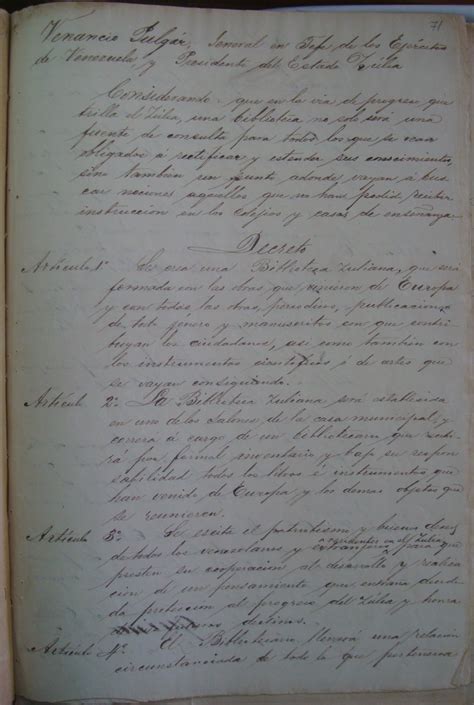 71
Venancio Pulgár, General en Jefe de los Ejércitos
de Venezuela y Presidente del Estado Zulia
Considerando: que en la via de progreso que
trilla el Zulia, una biblioteca no solo será una
fuente de consulta para todos los que se crean
obligados á rectificar y estender sus conocimientos,
sino tambien un punto adonde vayan á bus-
car nociones aquellos que no han podido recibir
instruccion en los colejios y casas de enseñanza
Decreto
Artículo 1º Se crea una Biblioteca Zuliana, que será
formada con las obras que vinieron de Europa
y con todas las obras, periodicos, publicaciones
de todo género y manuscritos con que contri-
buyan los ciudadanos, asi como tambien con
los instrumentos cientificos ó de artes que
se vayan consiguiendo.
Artículo 2º La Biblioteca Zuliana será establecida
en uno de los salones de la casa municipal, y
correrá á cargo de un bibliotecario que recibi-
rá por formal inventario y bajo su respon-
sabilidad todos los libros é instrumentos que
han venido de Europa y los demas objetos que
se reunieren.
Artículo 3º Se escita el patriotismo y buenos
residentes en el Zulia
de todos los venezolanos y extranjeros para que
presten su cooperacion al desarrollo y realiza-
cion de un pensamiento que entraña
proteccion al progreso del Zulia y honra
destinos.
Artículo 4º El Bibliotecario llevará una relación
circunstanciada de todo lo que pertenezca